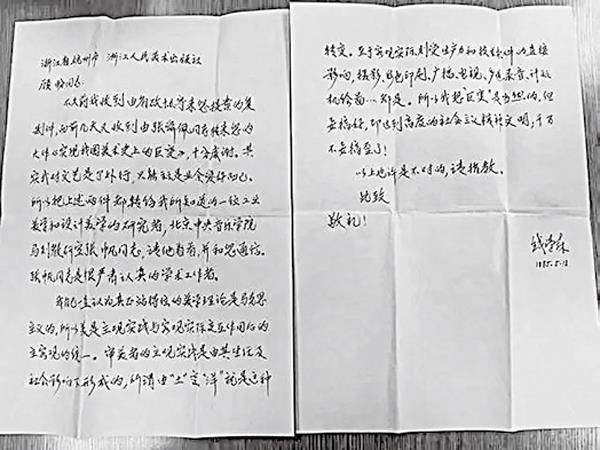 浙江省杭州市 浙江人民美术出版社
同志:
以前我收到由
复
制件,而前几天又收到由张 同志转来您的
大作《实现我国美术史上的巨变》,十分感谢。其
实我对文艺是个外行,只能说是业余爱好而已。
所以把上述两件都转给我所知道的一位工业
美学和设计美学的研究者,北京中央音乐学院
马列教研室张帆同志,请他看看,并和您通信。
张帆同志是很严肃认真的学术工作者。
我自己一直认为真正站得住的美学理论是马克思
主义的,所以美是主观实践与客观实际交互作用后的
主客观的统一。审美者的主观实践是由其生活及
社会影响了形成的,所谓由“土”变“洋”就是这种
转变。至于客观实际则受生产力和技术条件的直接
影响,摄影、彩色印刷、广播、电视、 录音、计算
机绘画…都是。所以我想“巨变”是当然的,但
要搞好,即达到高度的社会主义精神文明,千万
不要搞歪了!
以上也许是不对的,请指教。
此致
敬礼!
钱学森
1985.5.12